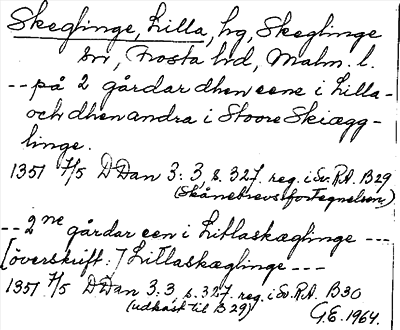 Skeglinge, Lilla, hg, Skeglinge
sn, Frosta hd, Malm. l.
-- på 2 gårdar dhen eene i Lilla -
och dhen andra i Stoore Skiægg-
linge.
1351 7/5 DDan 3:3, s. 327. reg. i Sv. R.A. B 29
(Skånebrevsförtegnelsen)
-- 2ne gårdar een i Litlaskæglinge ---
[överskrift:] Litlaskæglinge ---
1351 7/5 DDan 3:3 s. 327. reg. i Sv. R.A. B 30
(udkast til B 29)
G.E. 1964.